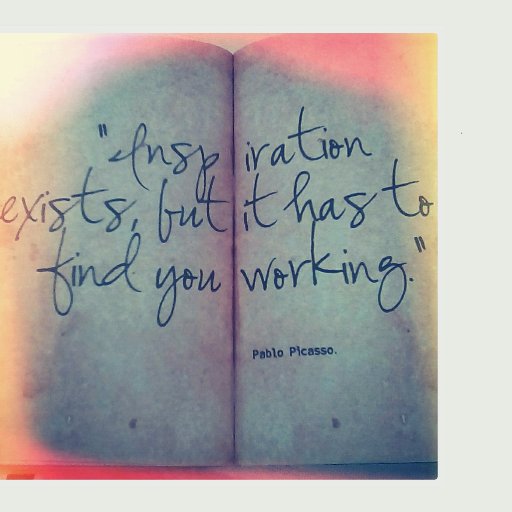 "Inspiration
exists, but it has to
find you working."
Pablo Picasso.